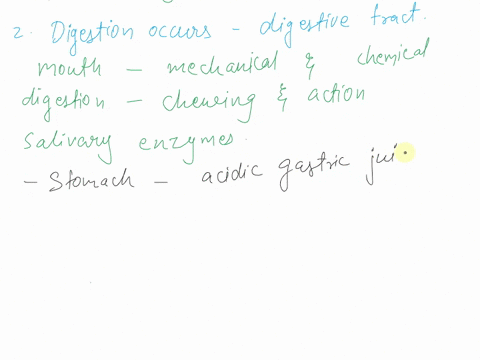 2. Digestion occurs - digestive tract.
mouth - mechanical & chemical
digestion - chewing & action
Salivary enzymes.
- Stomach - acidic gastric jui